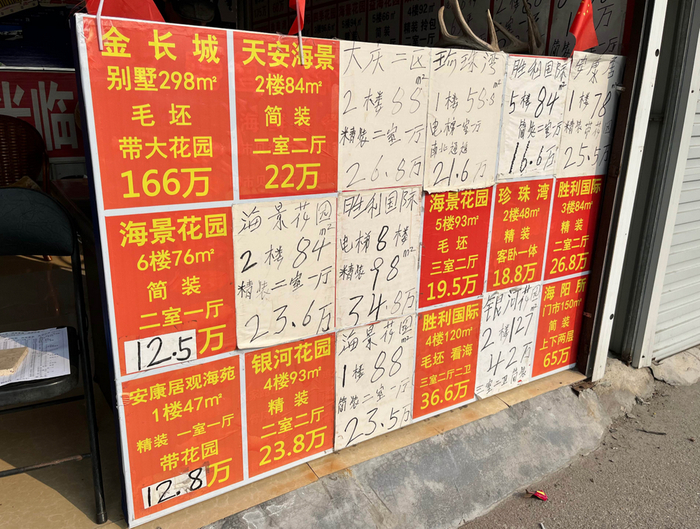 金长城
别墅298m²
毛坯
带大花园
166万
天安海景
2楼84m²
简装
二室二厅
22万
大庆二区
2楼55m²
精装二室一厅
26.8万
1楼55.8m²
电梯一室一厅
21.6万
胜利国际
5楼84m²
简装二室一厅
16.6万
1楼78m²
精装
25.5万
海景花园
6楼76m²
简装
二室一厅
12.5万
海景花园
2楼84m²
精装二室一厅
23.6万
胜利国际
电梯8楼
精装98m²
34.8万
海景花园
5楼93m²
毛坯
三室二厅
19.5万
珍珠湾
2楼48m²
精装
客卧一体
18.8万
胜利国际
3楼84m²
精装
二室二厅
26.8万
安康居观海苑
1楼47m²
精装 一室一厅
带花园
12.8万
银河花园
4楼93m²
精装
二室二厅
23.8万
海景花园
1楼88m²
简装二室二厅
23.5万
胜利国际
4楼120m²
毛坯 看海
三室二厅二卫
36.6万
银河花园
2楼127m²
42万
三室二卫简装
海阳所
门市150m²
简装
上下两层
65万